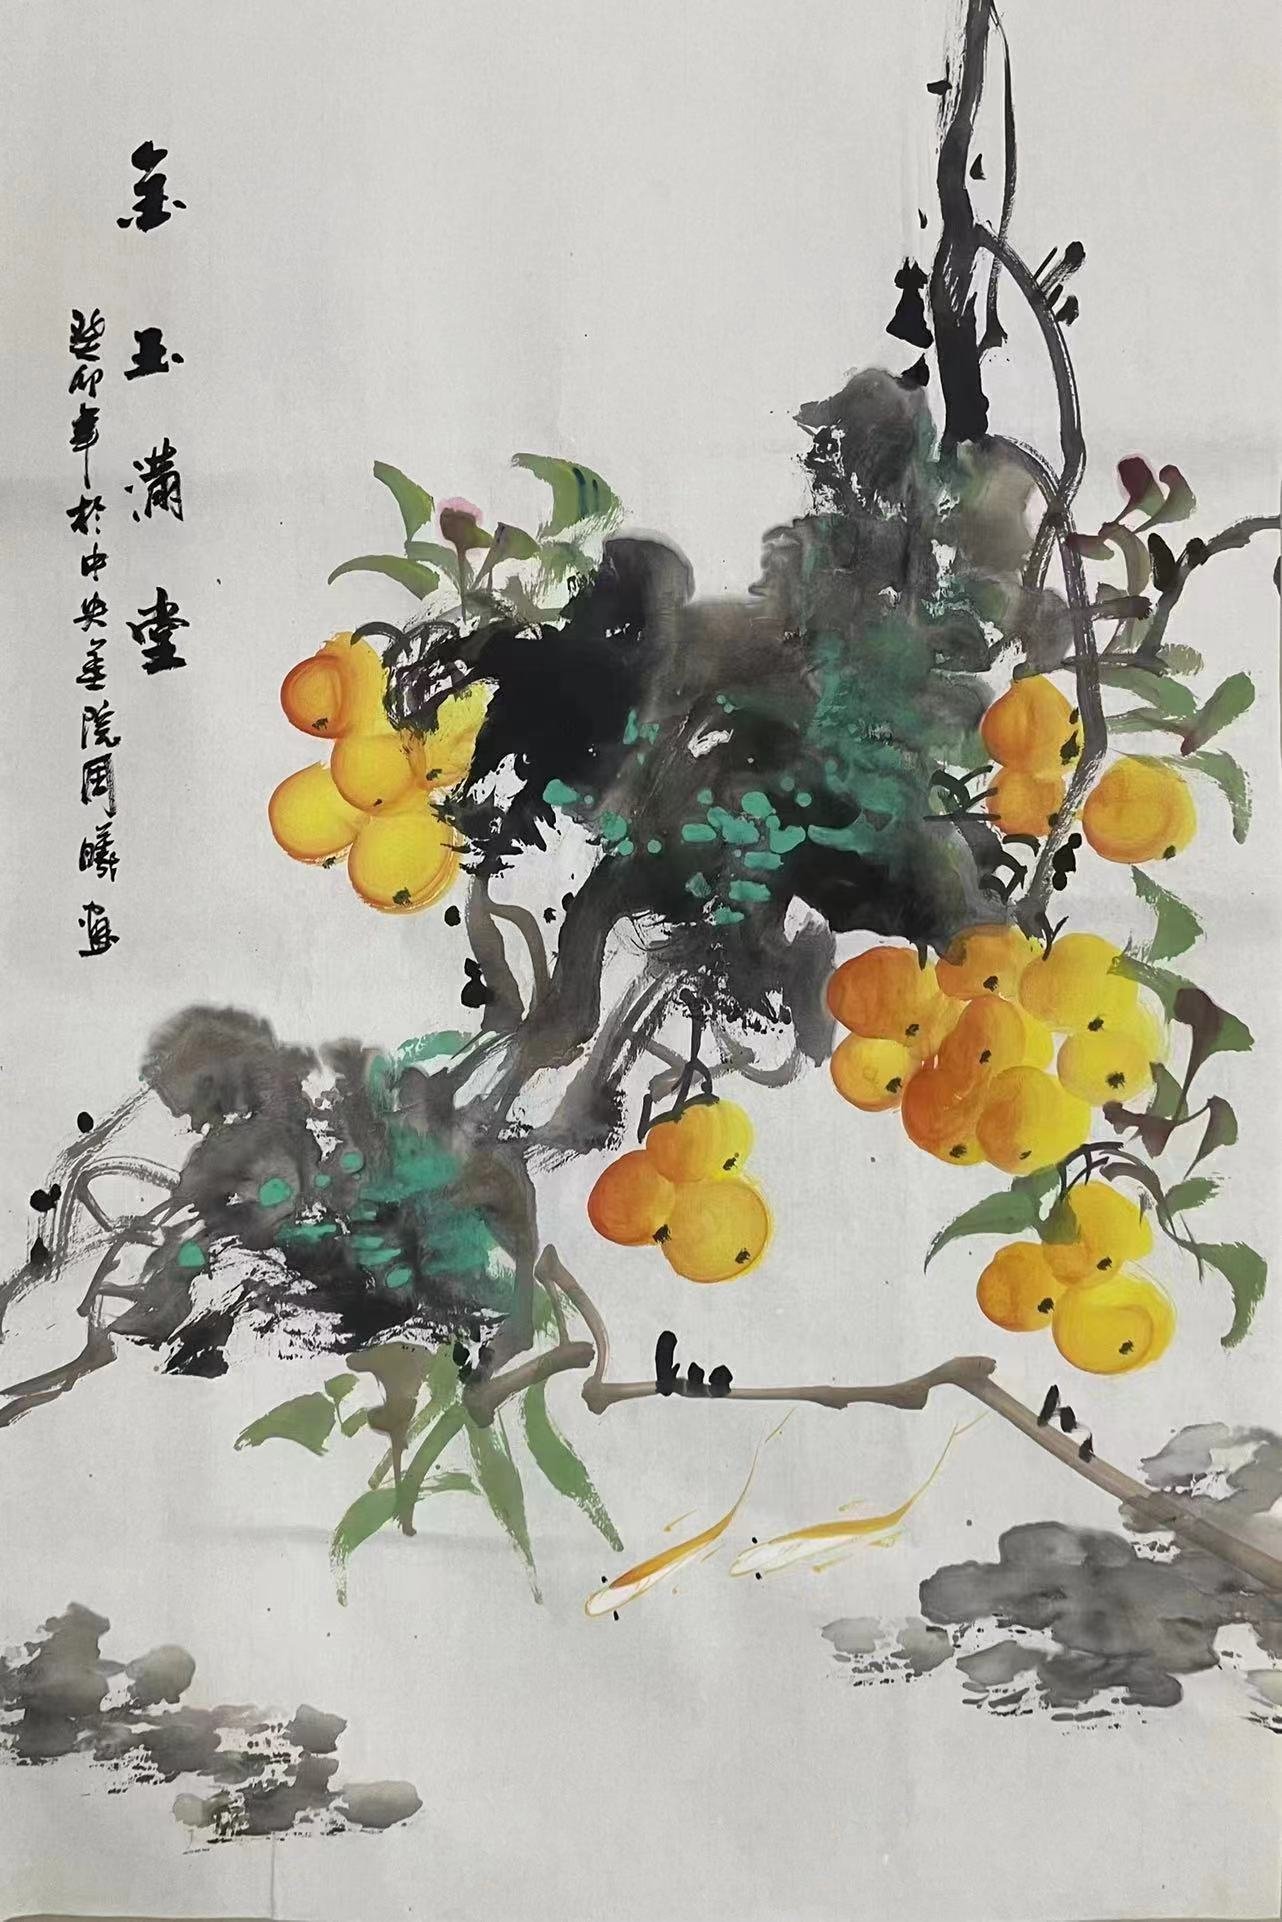 金玉满堂
癸卯年於中央美院周曦画